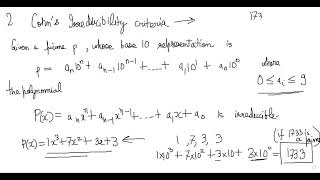 2 Cohn's Irreducibility criteria → 173
Given a prime p, whose base 10 representation is
p = aₙ10ⁿ + aₙ₋₁10ⁿ⁻¹ + ...... + a₁10¹ + a₀10⁰ where
0 ≤ aᵢ ≤ 9
the polynomial
P(x) = aₙxⁿ + aₙ₋₁xⁿ⁻¹ + ..... + a₁x + a₀ is irreducible.
P(x) = 1x³ + 7x² + 3x + 3 ← 1, 7, 3, 3 (if 1733 is a prime)
1×10³ + 7×10² + 3×10 + 3×10⁰ = 1733